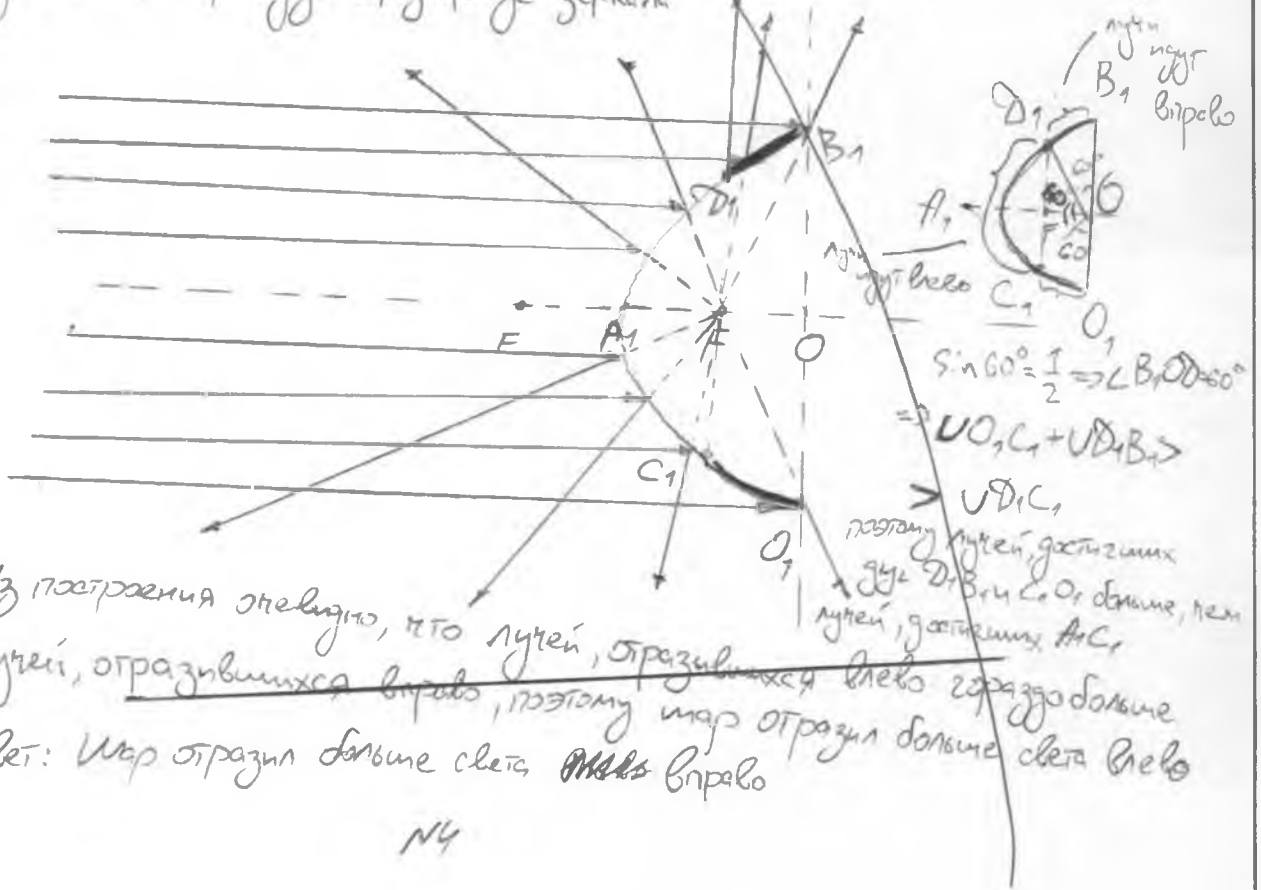 зеркала
лучи
идут
вправо
B₁
D₁
60°
60
O
A₁
F
60
C₁
O₁
лучи
идут влево
B₁
D₁
F A₁ F O
C₁
O₁
sin 60° = 1/2 => ∠B₁OD=60°
=> ∪O₁C₁ + ∪D₁B₁ >
> ∪D₁C₁
поэтому лучей, достигших
дуг D₁B₁ и C₁O₁ больше, чем
лучей, достигших A₁C₁
з построения очевидно, что лучей, отразившихся влево гораздо больше
учей, отразившихся вправо, поэтому шар отразил больше света влево
вет: Шар отразил больше света вправо
N4